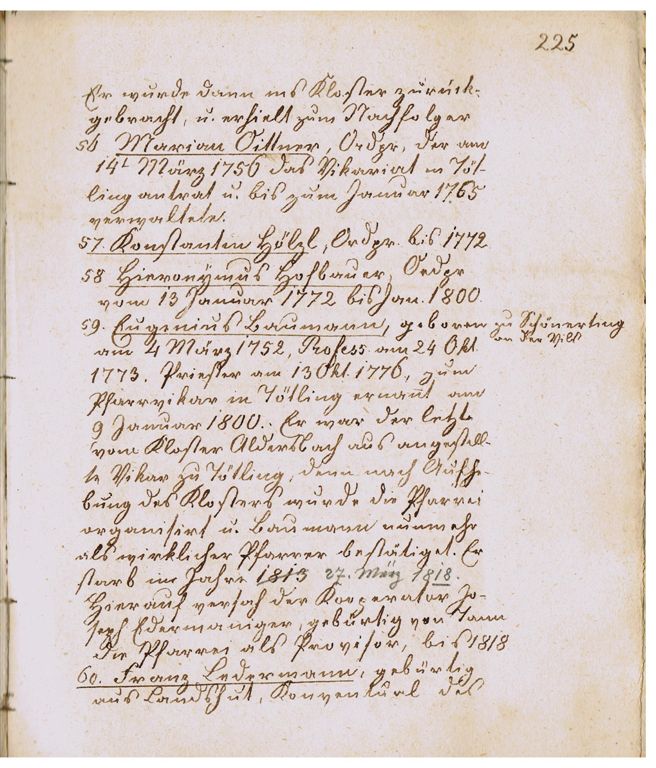 225
Er wurde dann ins Kloster zurück-
gebracht, u. erhielt zum Nachfolger
56 Marian Sittner, Ordpr, der am
14t März 1756 das Vikariat in Töt-
ling antrat u. bis zum Januar 1765
verwaltete.
57. Konstantin Hölzl, Ordpr. bis 1772
58 Hieronÿmus Hofbauer, Ordpr
vom 13 Januar 1772 bis Jan. 1800.
59. Eugenius Baumann, geboren zu Schönerting
an der Vils
am 4 März 1752, Profess. am 24 Okt.
1773. Priester am 13 Okt. 1776, zum
Pfarrvikar in Tötling ernant am
9 Januar 1800. Er war der letzte
vom Kloster Aldersbach aus angestell-
te Vikar zu Tötling, denn nach Aufhe-
bung des Klosters wurde die Pfarrei
organisirt u. Baumann nunmehr
als wirklicher Pfarrer bestätiget. Er
starb im Jahre 1813 27. März 1818.
Hierauf versah der Kooperator Jo-
seph Edermaniger, gebürtig von Tann
die Pfarrei als Provisor, bis 1818
60. Franz Ledermann, gebürtig
aus Landshut, Konventual des